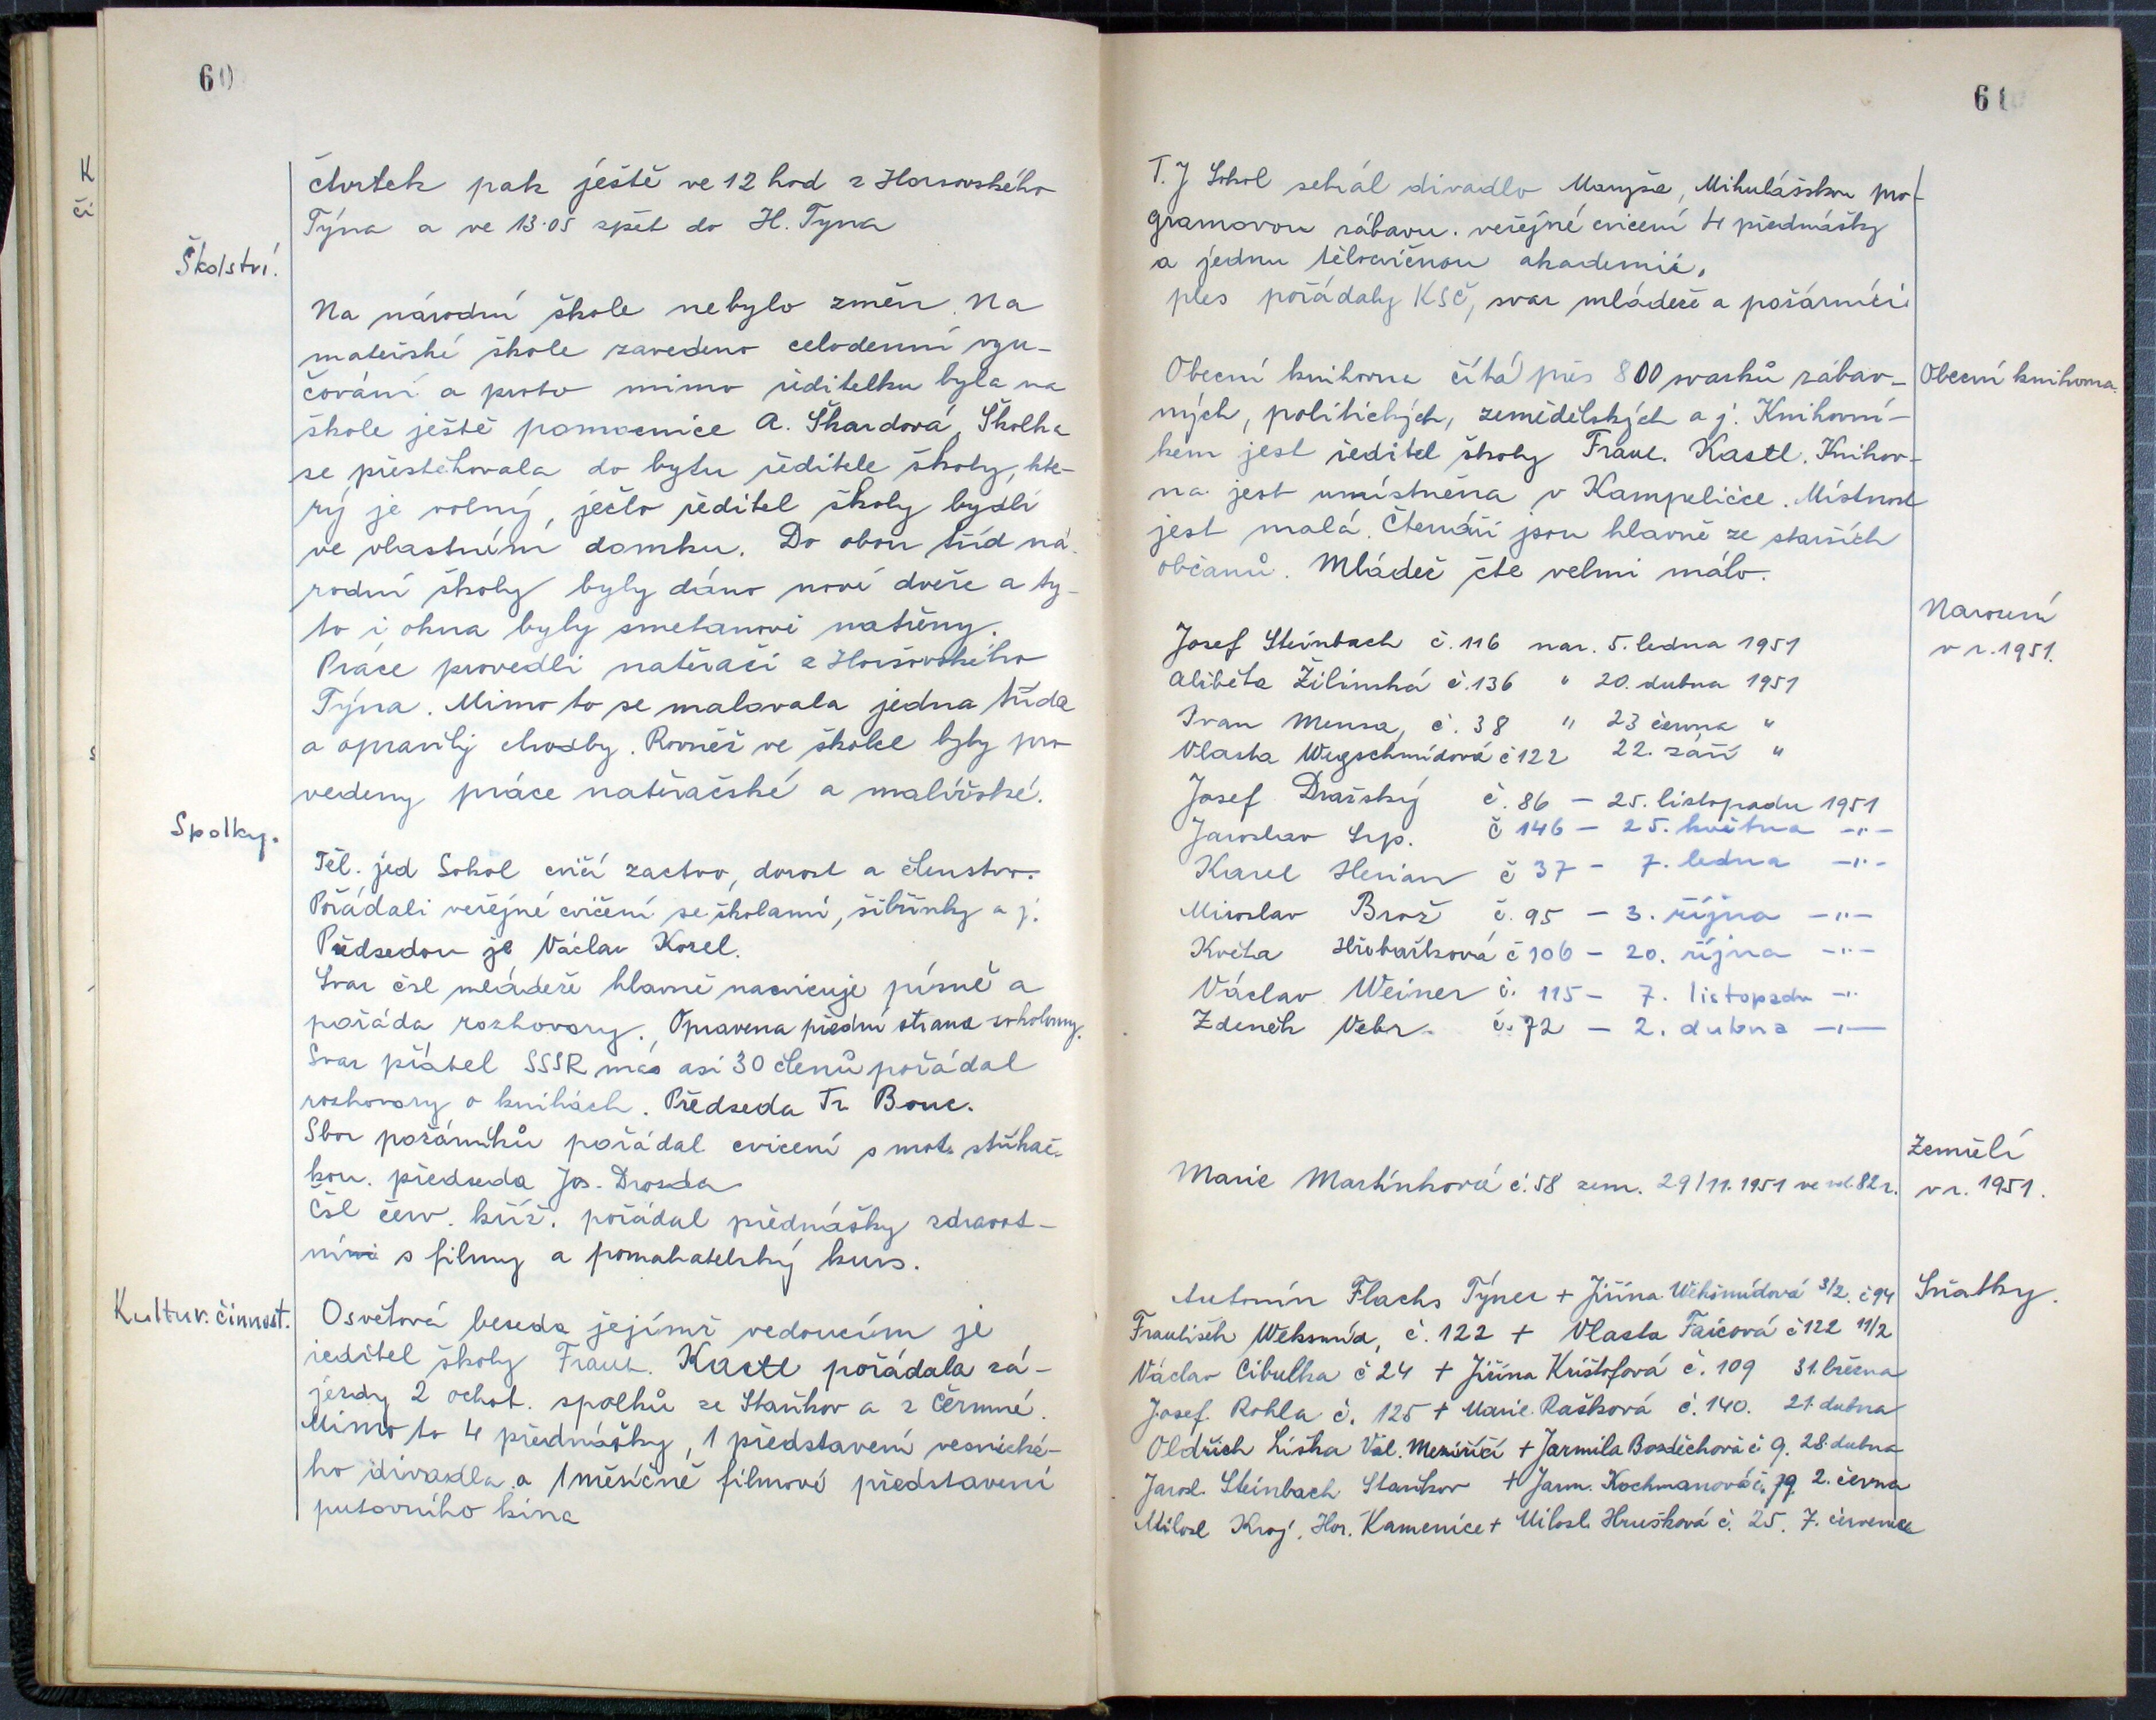 60
čtvrtek pak ještě ve 12 hod z Horsovského
Týna a ve 13.05 zpět do H. Tyna
Školství.
Na národní škole nebylo změn. Na
mateřské škole zavedeno celodenní vyu-
čování a proto mimo ředitelku byla na
škole ještě pomocnice A. Škardová. Školka
se přestěhovala do bytu ředitele školy, kte-
rý je volný, ječto ředitel školy bydlí
ve vlastním domku. Do obou tříd ná-
rodní školy byly dáno nové dveře a ty-
to i okna byly smetanově natřeny.
Práce provedli natěrači z Horšovského
Týna. Mimo to se malovala jedna třída
a opravily chodby. Rovněž ve školce byly pro
vedeny práce natěračské a malířské.
Spolky.
Těl. jed Sokol cvičí žactvo, dorost a členstvo.
Pořádali veřejné cvičení se školami, šibřinky a j.
Předsedou je Václav Kozel.
Svaz čsl mládeže hlavně nacvicuje písně a
pořáda rozhovory. Opravena přední strana sokolovny.
Svaz přátel SSSR má asi 30 členů pořádal
rozhovory o knihách. Předseda Fr. Bouc.
Sbor požárníků pořádal cvicení s mot. stříkač-
kou. předseda Jos. Drozda
Čsl červ. kříž. pořádal přednášky zdravot-
ními s filmy a pomahatelský kurs.
Kultur. činnost.
Osvětová beseda jejímž vedoucím je
ředitel školy Frant. Kastl pořádala zá-
jezdy 2 ochot. spolků ze Staňkov a z Čermné.
Mimo to 4 přednášky, 1 představení vesnické-
ho divadla a 1 měsíčně filmové představení
putovního kina
61
T. J Sokol sehrál divadlo Maryša, Mikulášskou pro-
gramovou zábavu. veřejné cvicení 4 přednášky
a jednu tělocvičnou akademii.
ples pořádaly KSČ, svaz mládeže a požárníci
Obecní knihovna čítá přes 800 svazků zábav-
Obecní knihovna.
ných, politických, zemědělských a j. Knihovní-
kem jest ředitel školy Frant. Kastl. Knihov-
na jest umístněna v Kampeličce. Místnost
jest malá. Čtenáři jsou hlavně ze starších
občanů. Mládež čte velmi málo.
Narození
v r. 1951.
Josef Steinbach č. 116 nar. 5. ledna 1951
Alžběta Žilinská č. 136 " 20. dubna 1951
Ivan Mensa, č. 38 " 23 června "
Vlasta Wegschmídová č 122 22. září "
Josef Dražský č. 86 – 25. listopadu 1951
Jaroslav Srp. č 146 – 25. května –"–
Karel Herian č 37 – 7. ledna –"–
Miroslav Brož č. 95 – 3. října –"–
Květa Hřebaříková č 106 – 20. října –"–
Václav Weiner č. 115 – 7. listopadu –"–
Zdeněk Vebr č. 72 – 2. dubna –"–
Zemřelí
v r. 1951.
Marie Martínková č. 58 zem. 29/11. 1951 ve 82 r.
Sňatky.
Antonín Flachs Týnec + Jiřina Wekšmídová 3/2. č 94
František Weksmíd, č. 122 + Vlasta Faicová č 122 11/2
Václav Cibulka č 24 + Jiřina Krištofová č. 109 31. března
Josef Rohla č. 125 + Marie Rašková č. 140. 21. dubna
Oldřich Liška Val. Meziříčí + Jarmila Bozděchová č 9. 28. dubna
Jarosl. Steinbach Staňkov + Jarm. Kochmanová č. 79. 2. června
Milosl Kroj, Hor. Kamenice + Milosl. Hrušková č. 25. 7. července